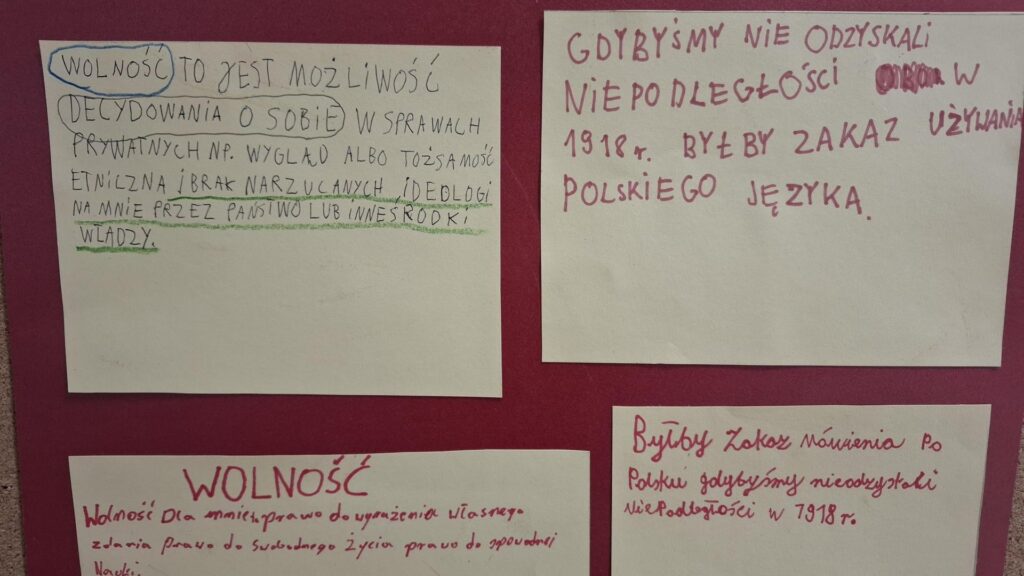 WOLNOŚĆ TO JEST MOŻLIWOŚĆ
DECYDOWANIA O SOBIE W SPRAWACH
PRYWATNYCH NP. WYGLĄD ALBO TOŻSAMOŚĆ
ETNICZNA I BRAK NARZUCANYCH IDEOLOGI
NA MNIE PRZEZ PAŃSTWO LUB INNE ŚRODKI
WŁADZY.
GDYBYŚMY NIE ODZYSKALI
NIEPODLEGŁOŚCI W
1918r. BYŁBY ZAKAZ UŻYWANIA
POLSKIEGO JĘZYKA.
WOLNOŚĆ
Wolność Dla mnie prawo do wyrażenia własnego
zdania Prawo do Swobodnego Życia prawo do
Nauki.
Byłby Zakaz Mówienia Po
Polsku gdybyśmy nieodzyskali
NiePodległości w 1918r.